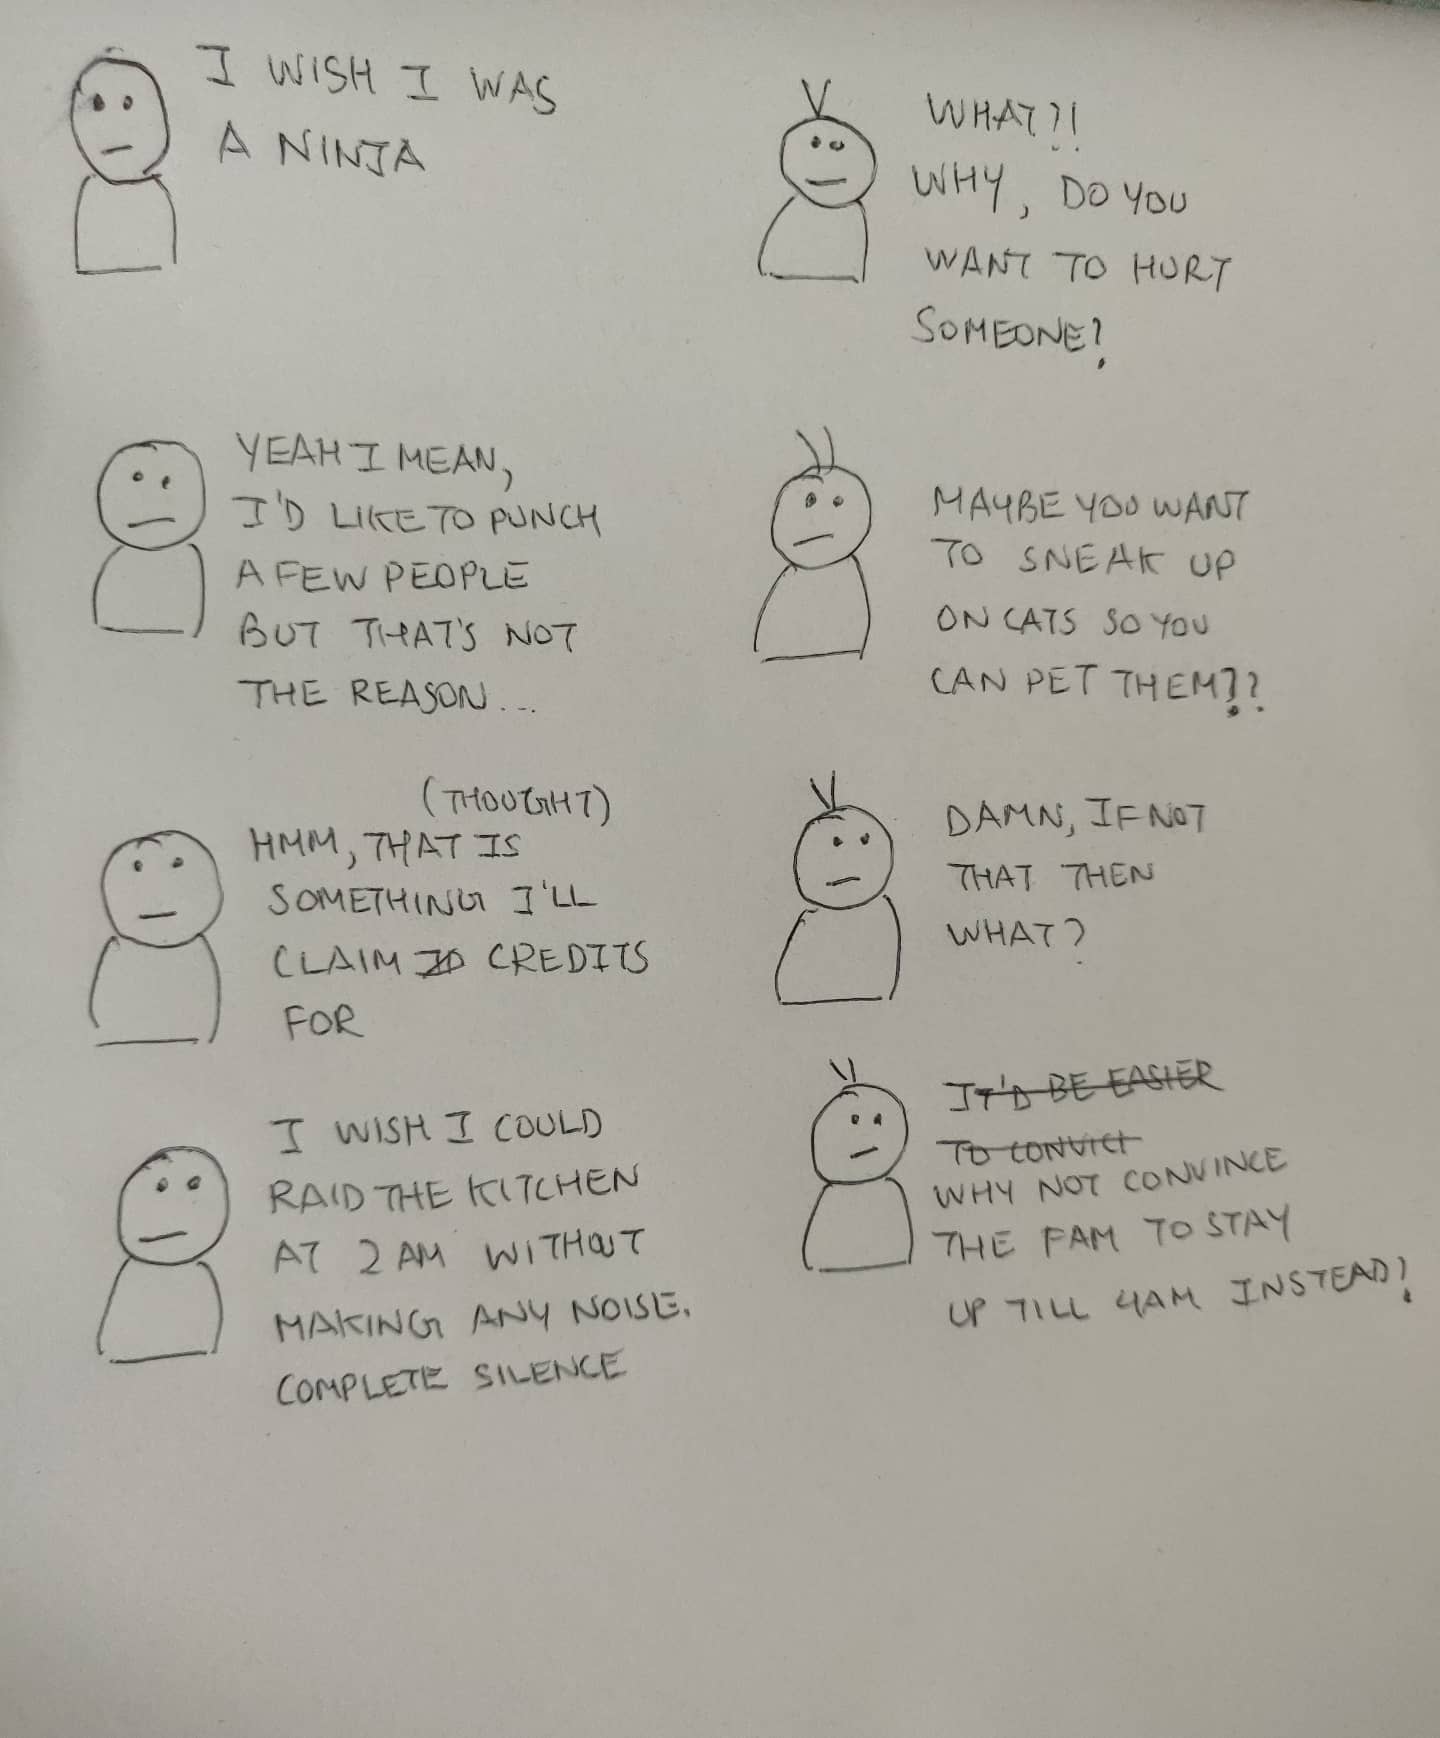 I WISH I WAS
A NINJA
WHAT?!
WHY, DO YOU
WANT TO HURT
SOMEONE?
YEAH I MEAN,
I'D LIKE TO PUNCH
A FEW PEOPLE
BUT THAT'S NOT
THE REASON...
MAYBE YOU WANT
TO SNEAK UP
ON CATS SO YOU
CAN PET THEM??
(THOUGHT)
HMM, THAT IS
SOMETHING I'LL
CLAIM CREDITS
FOR
DAMN, IF NOT
THAT THEN
WHAT?
I WISH I COULD
RAID THE KITCHEN
AT 2 AM WITHOUT
MAKING ANY NOISE.
COMPLETE SILENCE
IT'D BE EASIER
TO CONVICI
WHY NOT CONVINCE
THE FAM TO STAY
UP TILL 4AM INSTEAD?